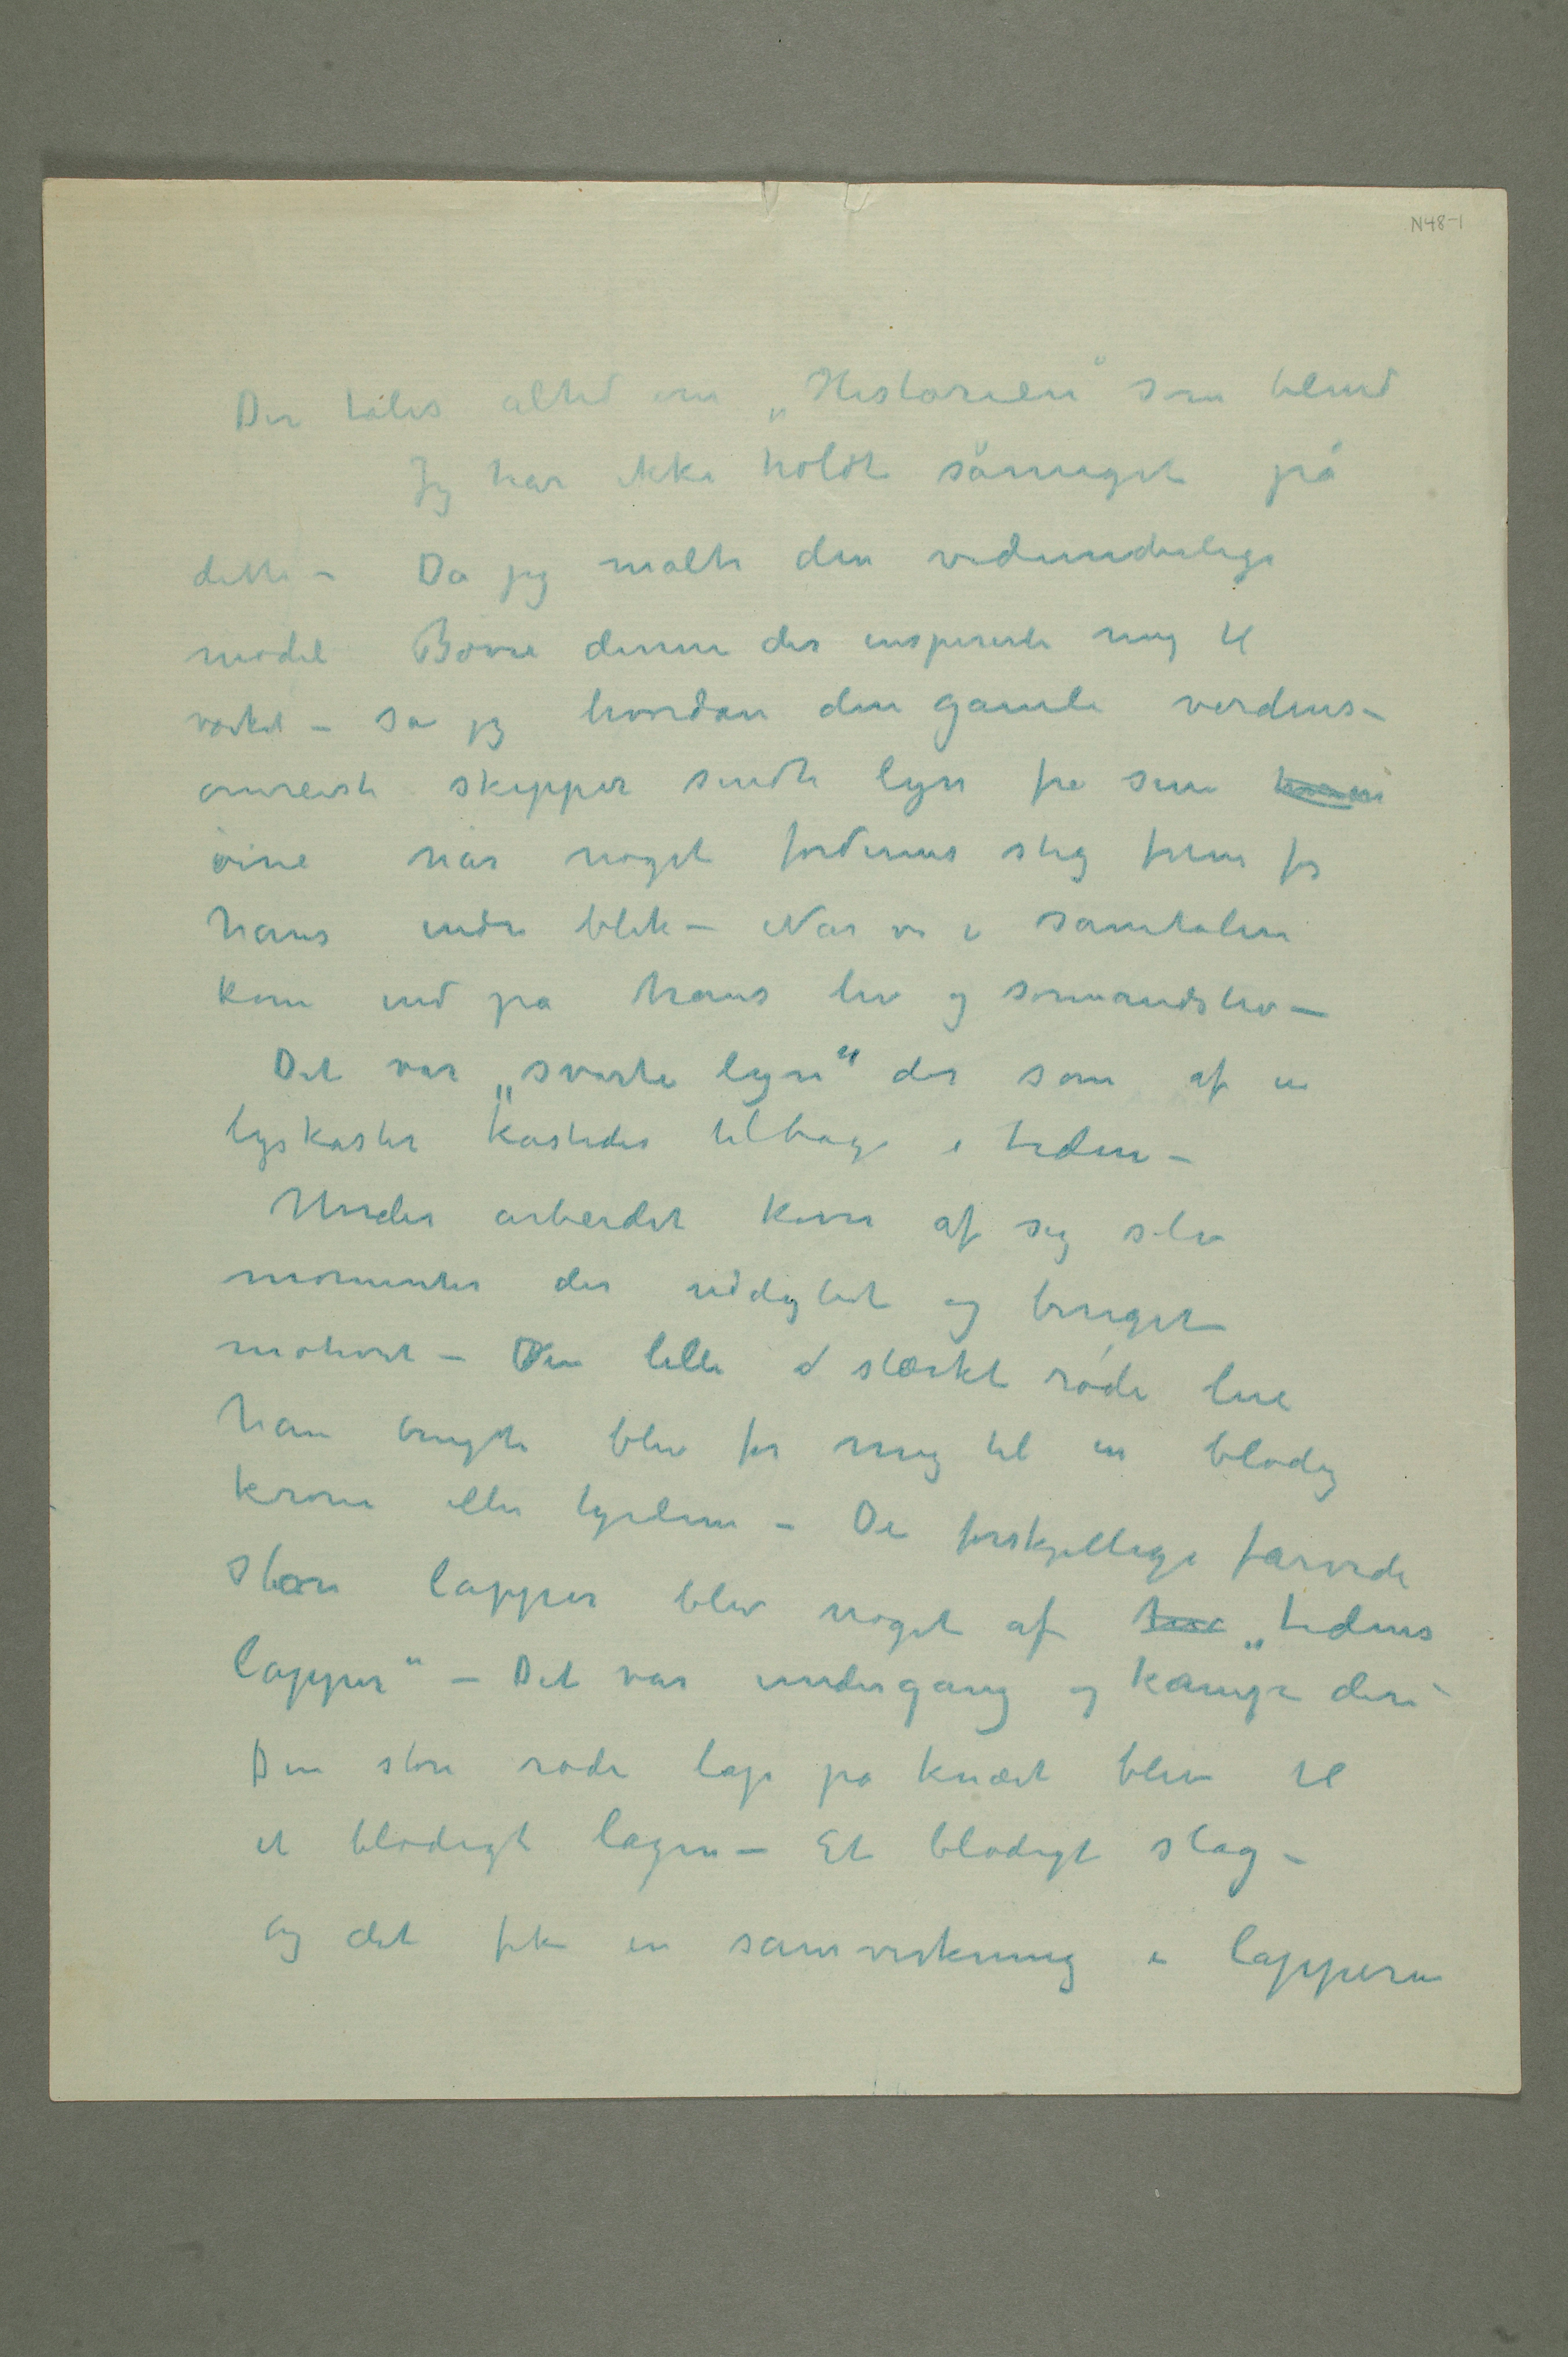 N48-1
Der tales altid om „Historien“ som blind
Jeg har ikke holdt såmeget på
dette – Da jeg malte den vidunderlige
model Børre denne der inspirerte mig til
værket – så jeg hvordan den gamle verdens-
omreiste skipper sendte lyn fra sine
øine når noget fordums steg frem for
hans indre blik – Når vi i samtalen
kom ind på hans liv og sømandsliv –
Det var „svarte lyn“ der som af en
lyskaster kastedes tilbage i tiden –
Under arbeidet kom af sig selv
momenter der uddybet og
motivet – Den lille stærkt røde lue
han brugte blev for mig til en blodig
krone eller hjelm – De forskjellige farvede
store lapper blev noget af „tidens
lapper“ – Det var undergang og kampe deri
Den store røde lap på knæet blev til
et blodigt lagen – Et blodigt slag –
Og det fik en samvirkning i lapperne